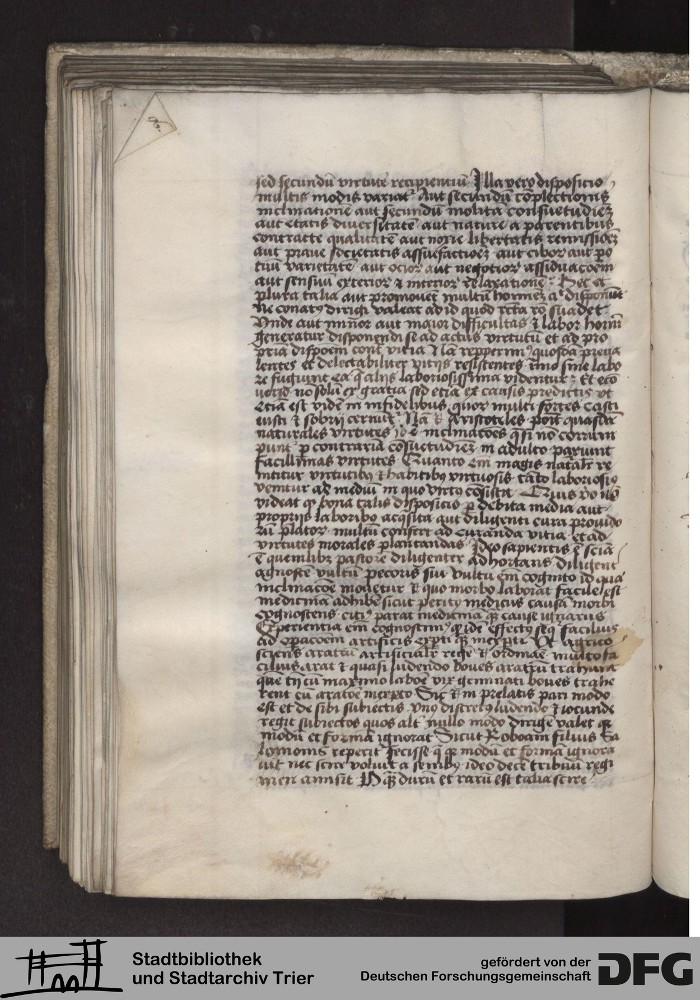 sed secundū virtutē recipientiū Illa vero dispositio
multis modis variat᷑ Aut secundū cōplectionis
inclinationē aut secundū molita consuetudiez
aut etatis diuersitatē aut nature a parentibus
contracte qualitatē aut nouē libertatis remissioēz
aut praue societatis assuefactioēz aut cibor aut po
tuū varietatē aut ocior aut negotior assiduacoēm
aut sensuū exterior & interior relaxationē Hec et
plura talia aut promouēt multū hominez a disponūt
ne conatꝰ dirigi valeat ad id quod recta rō suadet
Vnde aut minor aut maior difficultas & labor homī
generatur disponendi se ad actus virtutū et ad pro
priā dispoēm contª vitia Nā repperimꝰ quosdā preua
lentes et delectabiliter vitijs resistentes īmo sine labo
re fugiunt ea q̄ alijs laboriosissima videntur Et eco
uerso nō solū ex gratia sed etiā ex causis predictis vt
etiā est videre in infidelibus quor multi fortes casti
iusti & sobrij cernūt᷑ Nā & Aristoteles ponit quasdā
naturales virtutes id ē inclinacōes q̄ si nō corrum
punt᷑ p contrariā cōsuetudinez in adulto pariunt
facillimas virtutes Quanto em̄ magis natalr re
mittūr virtutibꝰ & habitibꝰ virtuosis tāto laboriosiꝰ
venitur ad mediū in quo virtꝰ cōsistit
videat qꝫ bona talis dispositio p debita media aut
proprijs laboribꝰ acq̄sita aut diligenti cura prouido
rū prelatorū multū confert ad curanda vitia et ad
virtutes morales plantandas Ideo sapientis ē sciā
ē quemlibꝫ pastorē diligenter adhortans diligent᷑
agnosce vultū pecoris tui vultū em̄ cognito id qua
inclinacōe mouetur & quo morbo laborat facile est
medicinā adhibē sicut peritꝰ medicus causā morbi
cognoscens citiꝰ parat medicinā qꝫ cause ignarus
Experientia em̄ cognoscimꝰ qꝫ idē effectꝰ seqꝰ facilius
ad opacōem artificis exp̄ti qꝫ inexpti Et agrico
sciens aratrū artificialr regē & ordinarē multo fa
cilius arat & quasi ludendo boues aratrū trahunt
que tn̄ cū maximo laboē vix geminati boues trahe
rent cū aratoē inexpto Sic & in prelatis pari modo
est et de sibi subiectis vnꝰ discretꝰ ludendo & iocunde
regit subiectos quos alt᷑ nullo modo dirigē valet qꝫ
modū et formā ignorat Sicut Roboam filius Sa
lomonis reperit᷑ fecisse q̄ qꝫ modū et formā ignora
uit nec scire voluit a senibꝰ ideo decē tribuū regi
men amisit O qꝫ durū et rarū est talia scire
Stadtbibliothek
und Stadtarchiv Trier
gefördert von der
Deutschen Forschungsgemeinschaft
DFG